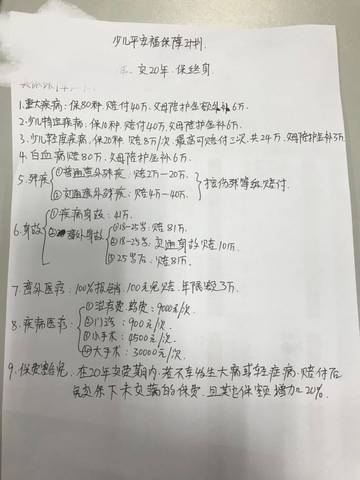 少儿平安福保障计划.
交20年.保终身
1.重大疾病:保80种.赔付40万.父母陪护金额补6万.
2.少儿特定疾病.保10种.赔付40万.父母陪护金补6万.
3.少儿轻度疾病.保20种 赔8万/次.最高可赔付三次.共24万.父母陪护补3万.
4.白血病赔80万.父母陪护金补6万.
5.残疾
①普通意外残疾:赔2万-20万.
②交通意外残疾:赔4万-40万.
按伤残等级赔付.
6.身故
①疾病身故:41万.
②意外身故
①18-25岁:赔81万.
②18-25岁:交通身故赔10万.
③25岁后:赔81万.
7.意外医疗:100%报销.100元免赔.年限额3万.
8.疾病医疗
①住院费.药费:9000元/次.
②门诊:900元/次
③小手术:4500元/次
④大手术:30000元/次.
9.保费豁免.在20年交费期内.若不幸发生大病或轻症病.赔付后
免交余下未交满的保费.且其它保额增加20%.